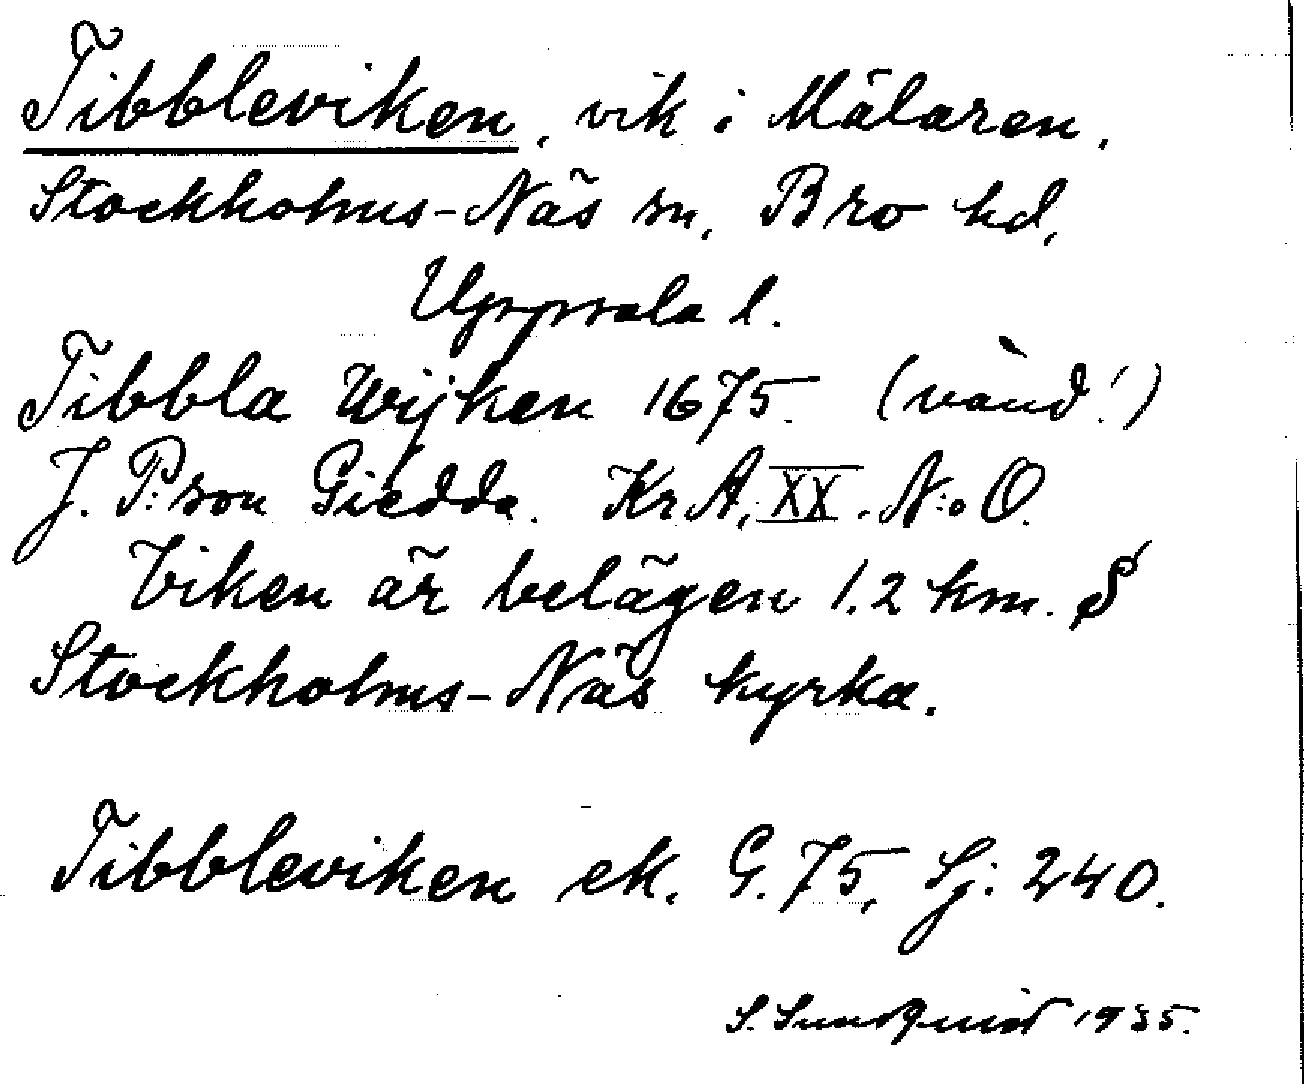 Tibbleviken, vik i Mälaren,
Stockholms-Näs sn, Bro hd,
Uppsala l.
Tibbla Wijken 1675. (vänd!)
J. P:son Giedda. KrA, XX. N:o O.
Viken är belägen 1.2 km. S
Stockholms-Näs kyrka.
Tibbleviken ek. G. 75, Sj: 240.
S. Sundquist 1935.